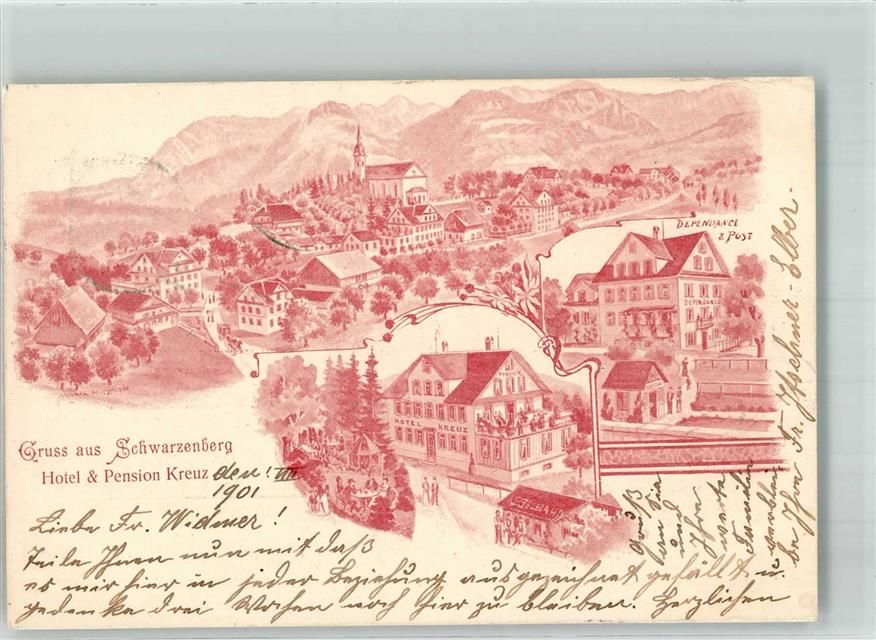 DEPENDANCE
& POST
DEPENDANCE
PENSION
HOTEL KREUZ
KEGELBAHN
Gruss aus Schwarzenberg
Hotel & Pension Kreuz den 1. VIII
1901
Liebe Fr. Widmer!
Teile Ihnen nun mit daß
es mir hier in jeder Beziehung ausgezeichnet gefällt u.
gedenke drei Wochen noch hier zu bleiben. Herzlichen
Gruß
an Sie
und
Ihre
werte
Familie
verblei-
be Ihre Fr.